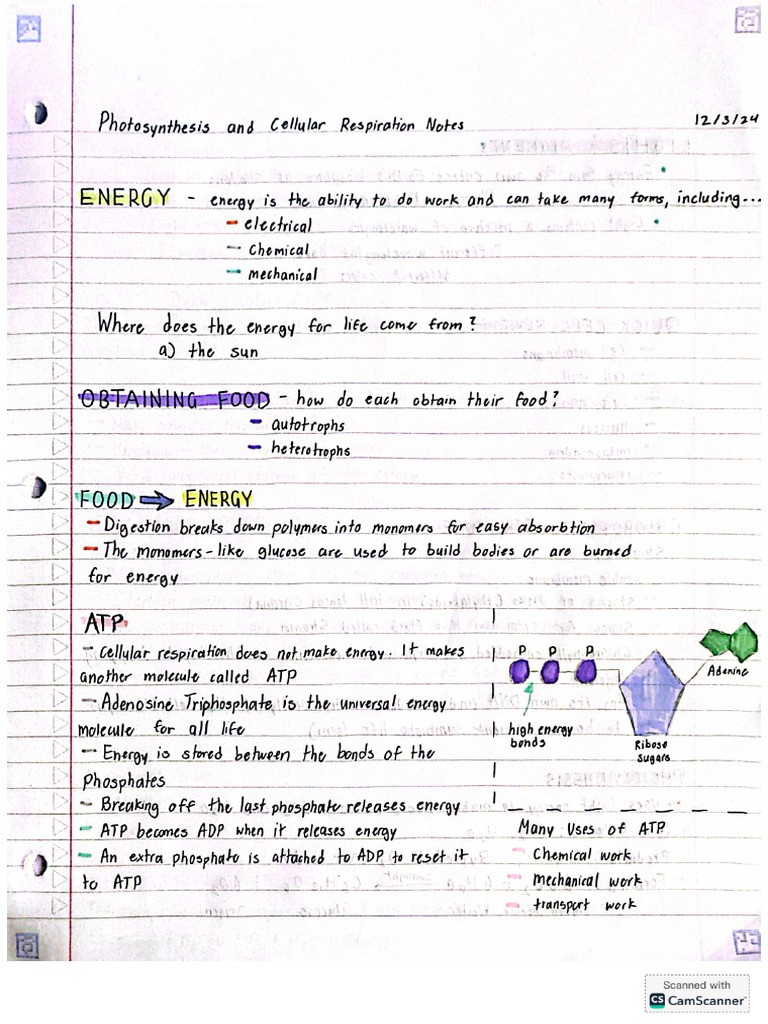 Photosynthesis and Cellular Respiration Notes
12/3/24
ENERGY - energy is the ability to do work and can take many forms, including...
- electrical
- Chemical
- mechanical
Where does the energy for life come from?
a) the sun
OBTAINING FOOD - how do each obtain their food?
- autotrophs
- heterotrophs
FOOD → ENERGY
- Digestion breaks down polymers into monomers for easy absorbtion
- The monomers - like glucose are used to build bodies or are burned
for energy
ATP
- Cellular respiration does not make energy. It makes
another molecule called ATP
- Adenosine Triphosphate is the universal energy
molecule for all life
- Energy is stored between the bonds of the
Phosphates
- Breaking off the last phosphate releases energy
- ATP becomes ADP when it releases energy
- An extra phosphate is attached to ADP to reset it
to ATP
P P P
Adenine
high energy
bonds
Ribose
sugars
Many Uses of ATP
- Chemical work
- mechanical work
- transport work
Scanned with
CS CamScanner